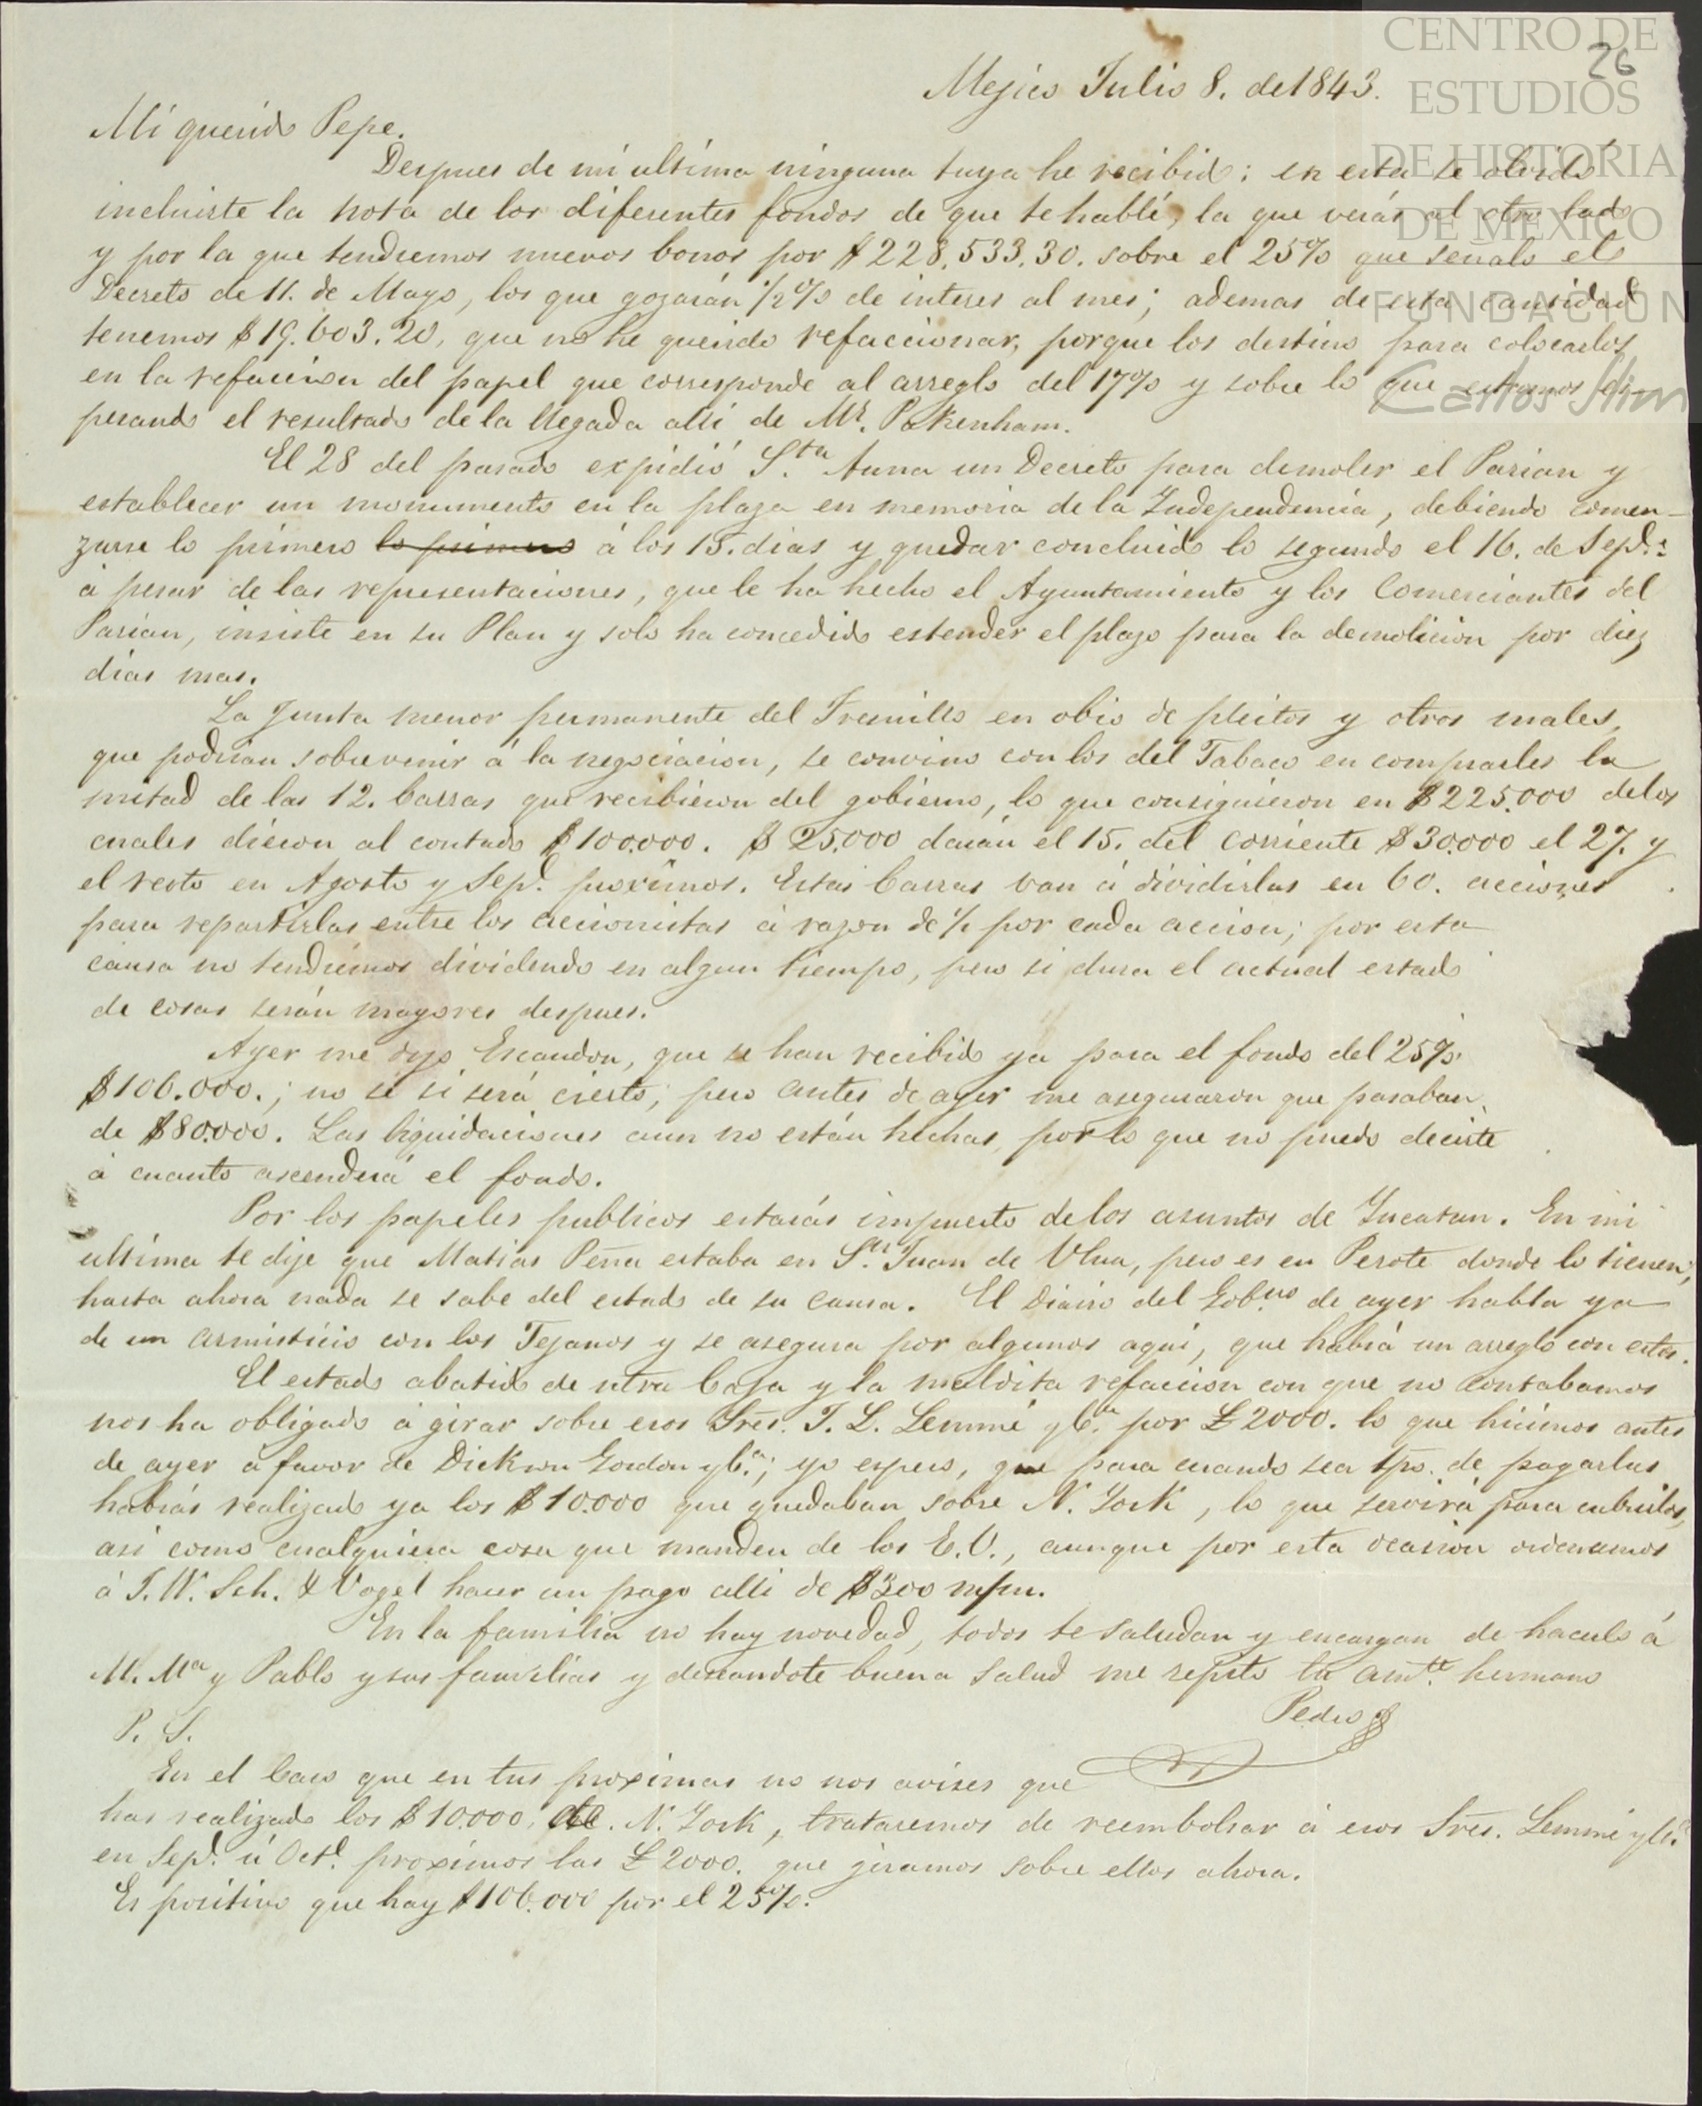 CENTRO DE
ESTUDIOS
DE HISTORIA
DE MEXICO
FUNDACION
Carlos Slim
26
Mejico Julio 8. de 1843.
Mi querido Pepe.
Despues de mi ultima ninguna tuya he recibido: en esta se olvidó
incluirte la nota de los diferentes fondos de que te hablé, la que verás al otro lado
y por la que tendremos nuevos bonos por $228,533.30. sobre el 25% que señaló el
Decreto de 11. de Mayo, los que gozarán ½% de interes al mes; ademas de esta cantidad
tenemos $19.603.20, que no he querido refaccionar, porque los destino para colocarlos
en la refaccion del papel que corresponde al arreglo del 17% y sobre lo que estamos es-
perando el resultado de la llegada alli de Mr. Pakenham.
El 28 del pasado expidió Sta. Anna un Decreto para demoler el Parian y
establecer un monumento en la plaza en memoria de la Independencia, debiendo comen-
zarse lo primero lo primero á los 15. dias y quedar concluido lo segundo el 16. de Sepe.:
á pesar de las representaciones, que le ha hecho el Ayuntamiento y los Comerciantes del
Parian, insiste en su Plan y solo ha concedido estender el plazo para la demolicion por diez
dias mas.
La Junta menor permanente del Fresnillo en obio de pleitos y otros males,
que podrian sobrevenir á la negociacion, se convino con los del Tabaco en comprarles la
mitad de las 12. barras que recibieron del gobierno, lo que consiguieron en $225.000 de los
cuales dieron al contado $100.000. $25.000 darán el 15. del corriente $30.000 el 27. y
el resto en Agosto y Sepe. proximos. Estas barras van á dividirlas en 60. acciones
para repartirlas entre los accionistas á razon de por cada accion; por esta
causa no tendremos dividendo en algun tiempo, pero si dura el actual estado
de cosas serán mayores despues.
Ayer me dijo Escandon, que se han recibido ya para el fondo del 25%
$106.000.; no sé si será cierto; pero antes de ayer me aseguraron que pasaban
de $80.000. Las liquidaciones aun no están hechas, por lo que no puedo decirte
á cuanto ascenderá el fondo.
Por los papeles publicos estarás impuesto de los asuntos de Yucatan. En mi
ultima te dije que Matias Peña estaba en Sn. Juan de Ulua, pero es en Perote donde lo tienen,
hasta ahora nada se sabe del estado de su causa. El Diario del Gobno. de ayer habla ya
de un armisticio con los Tejanos y se asegura por algunos aqui, que habrá un arreglo con estos.
El estado abatido de ntra Casa y la maldita refaccion con que no contabamos
nos ha obligado á girar sobre esos Sres. F. L. Lemmé y Ca. por £2000. lo que hicimos antes
de ayer á favor de Dickson Gordon y Ca.; yo espero, que para cuando sea tpo. de pagarlas
habrás realizado ya los $10.000 que quedaban sobre N. York, lo que servirá para cubrirlas,
asi como cualquiera cosa que manden de los E.U., aunque por esta ocasion ordenamos
á F. W. Sch. & Vogel hacer un pago alli de $300 m/m.
En la familia no hay novedad, todos te saludan y encargan de hacerlo á
M. Ma y Pablo y sus familias y deseandote buena salud me repito tu amte. hermano
Pedro
P. S.
En el Caso que en tus proximas no nos avises que
has realizado los $10.000 de N. York, trataremos de reembolsar á esos Sres. Lemmé y Ca.
en Sepe. ú Octe. proximos las £2000. que giramos sobre ellos ahora.
Es positivo que hay $106.000 por el 25%.